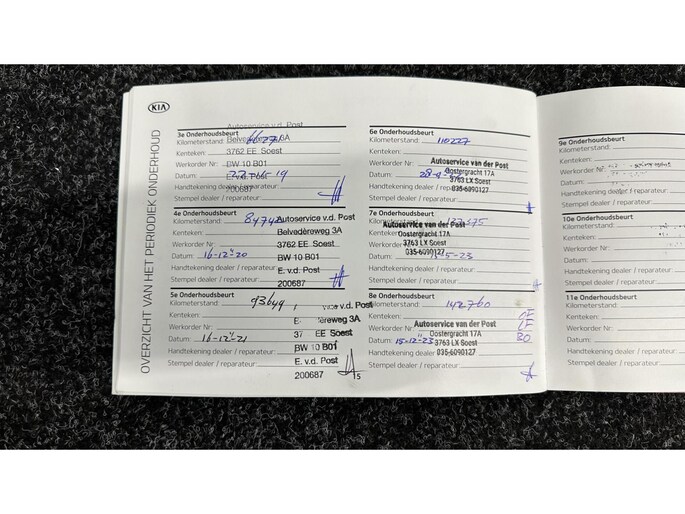 KIA
OVERZICHT VAN HET PERIODIEK ONDERHOUD
Autoservice v.d. Post
3e Onderhoudsbeurt
Kilometerstand:
Kenteken: 3762 EE Soest
Werkorder Nr: BW 10 B01
Datum: E.v.d. Post
Handtekening dealer / reparateur:
Stempel dealer / reparateur: 200687
4e Onderhoudsbeurt
Kilometerstand: Autoservice v.d. Post
Kenteken: Belvedèreweg 3A
Werkorder Nr: 3762 EE Soest
Datum: 16-12-20 BW 10 B01
Handtekening dealer / reparateur: E. v.d. Post
Stempel dealer / reparateur: 200687
5e Onderhoudsbeurt
Kilometerstand: 93649 v.d. Post
Kenteken: ereweg 3A
Werkorder Nr: 37 EE Soest
Datum: 16-12-21 BW 10 B01
Handtekening dealer / reparateur: E. v.d. Post
Stempel dealer / reparateur: 200687
5
6e Onderhoudsbeurt
Kilometerstand: 110227
Kenteken: Autoservice van der Post
Werkorder Nr: Oostergracht 17A
Datum: 3763 LX Soest
Handtekening dealer / reparateur: 035-6090127
Stempel dealer / reparateur:
7e Onderhoudsbeurt
Kilometerstand: Autoservice van der Post
Kenteken: Oostergracht 17A
Werkorder Nr: 3763 LX Soest
Datum: 035-6090127
Handtekening dealer / reparateur:
Stempel dealer / reparateur:
8e Onderhoudsbeurt
Kilometerstand: 142760
Kenteken: Autoservice van der Post
Werkorder Nr: Oostergracht 17A
Datum: 15-12-23 3763 LX Soest
Handtekening dealer / reparateur: 035-6090127
Stempel dealer / reparateur:
9e Onderhoudsbeurt
Kilometerstand:
Kenteken:
Werkorder Nr:
Datum:
Handtekening dealer / reparateur:
Stempel dealer / reparateur:
10e Onderhoudsbeurt
Kilometerstand:
Kenteken:
Werkorder Nr:
Datum:
Handtekening dealer / reparateur:
Stempel dealer / reparateur:
11e Onderhoudsbeurt
Kilometerstand:
Kenteken:
Werkorder Nr:
Datum:
Handtekening dealer / reparateur:
Stempel dealer / reparateur: